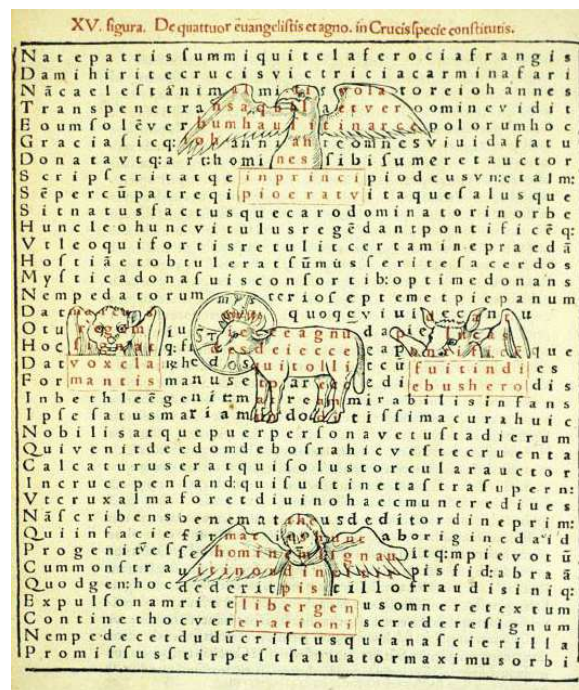 XV. figura. De quattuor ēuangeliſtis et agno. in Crucis ſpecie conſtitutis.
Natepatrisſummiquitelaferociafrangis
Damihiritecrucisvictriciacarminafari
Nācaeleſtānimal
Tranſpenetransaquilaetveroominevidit
Eumſolēverbumhauſitinarcepolorumhoc
Graciaſicq:iohanniāteomnesviuidafatu
Donatavtq:athominesſibiſumeretauctor
Scripſeritatqeinprincipiodeusvnetalm:
Sēpercūpatreqipioeratvitaqueſalusque
Sitnatusſactusquecarodominatorinorbe
Huncleohuncvitulusregēdantpontificēq:
Vtleoquifortisretulitcertaminepraedā
Hoſtiāetobtuleratſūmusſeriteſacerdos
Myſticadonaſuisconſortib:optimedonans
Nempedatorum terioſeptemetpiepanum
Da quoqeviui
Otu eteagnu
Hoc desdeiecce que
Datvoxcla quitoli fuitindies
Formantismanuse edi ebusherodis
Inbethleēgenitm mirabilisinfans
Ipſeſatusmariam tiſſimacuraluic
Nobilisatquepuerperſonavetuſtadierum
Quivenitdeedomdeboſrahicveſtecruenta
Calcaturuseratquiſolustorcularauctor
Incrucepenſand:quiſuſtinetaſtraſupern:
Vtcruxalmaforetdiuinohaecmunerediues
Nāſcribensbenematheusdeditordineprim:
Quiinfaciefit aboriginedaid
Progenitēeſſehominē ſignauitq:mpievotū
Cummonſtrau itinordine piſſid:abraā
Quodgen:hocdederitpiſtilloſraudisiniq:
Expulſonamritelibergenusomneretextum
Continethocvererationiscrederesignum
Nempedecetdudūcriſtusquianaſcierilla
Promiſſusſtirpeſtſaluatormaximusorbi